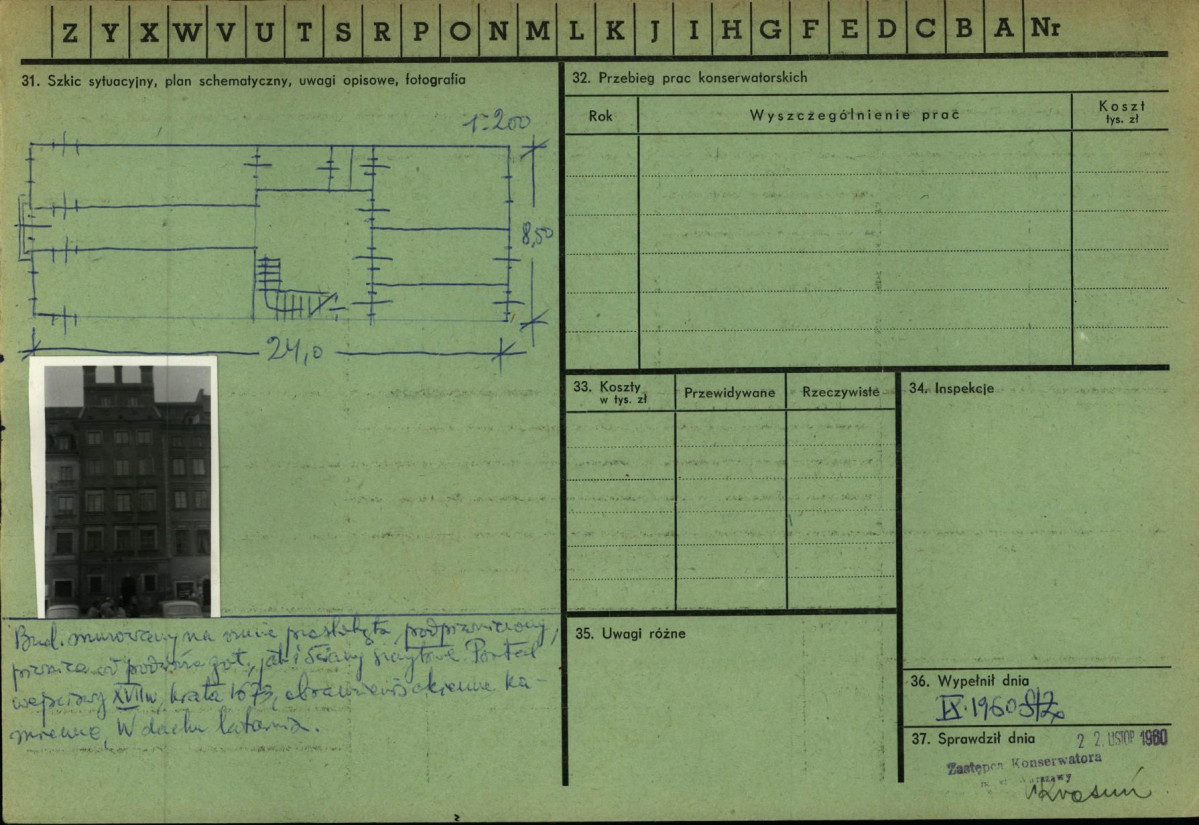 Z Y X W V U T S R P O N M L K J I H G F E D C B A Nr
31. Szkic sytuacyjny, plan schematyczny, uwagi opisowe, fotografia
1:200
8,50
24,0
Bud. murowany na rzucie prostokąta, podpiwniczony,
piwnica od podwórza got., jak i ściany szczytowe. Portal
wejściowy XVII w, krata 1673, obramienia okienne ka-
mienne, W dachu latarnia.
32. Przebieg prac konserwatorskich
Rok
Wyszczególnienie prac
Koszt
tys. zł
33. Koszty
w tys. zł
Przewidywane
Rzeczywiste
34. Inspekcje
35. Uwagi różne
36. Wypełnił dnia
IX.1960
37. Sprawdził dnia
22. LISTOP 1960
Zastępca Konserwatora